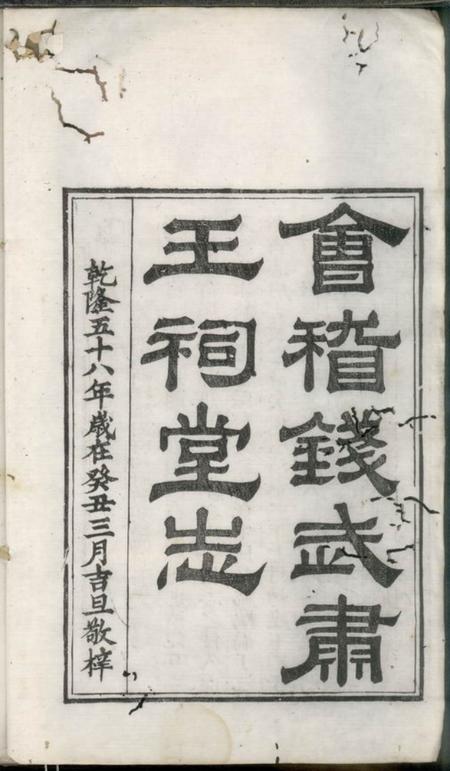 會稽錢武肅
王祠堂志
乾隆五十八年歲在癸丑三月吉旦敬梓